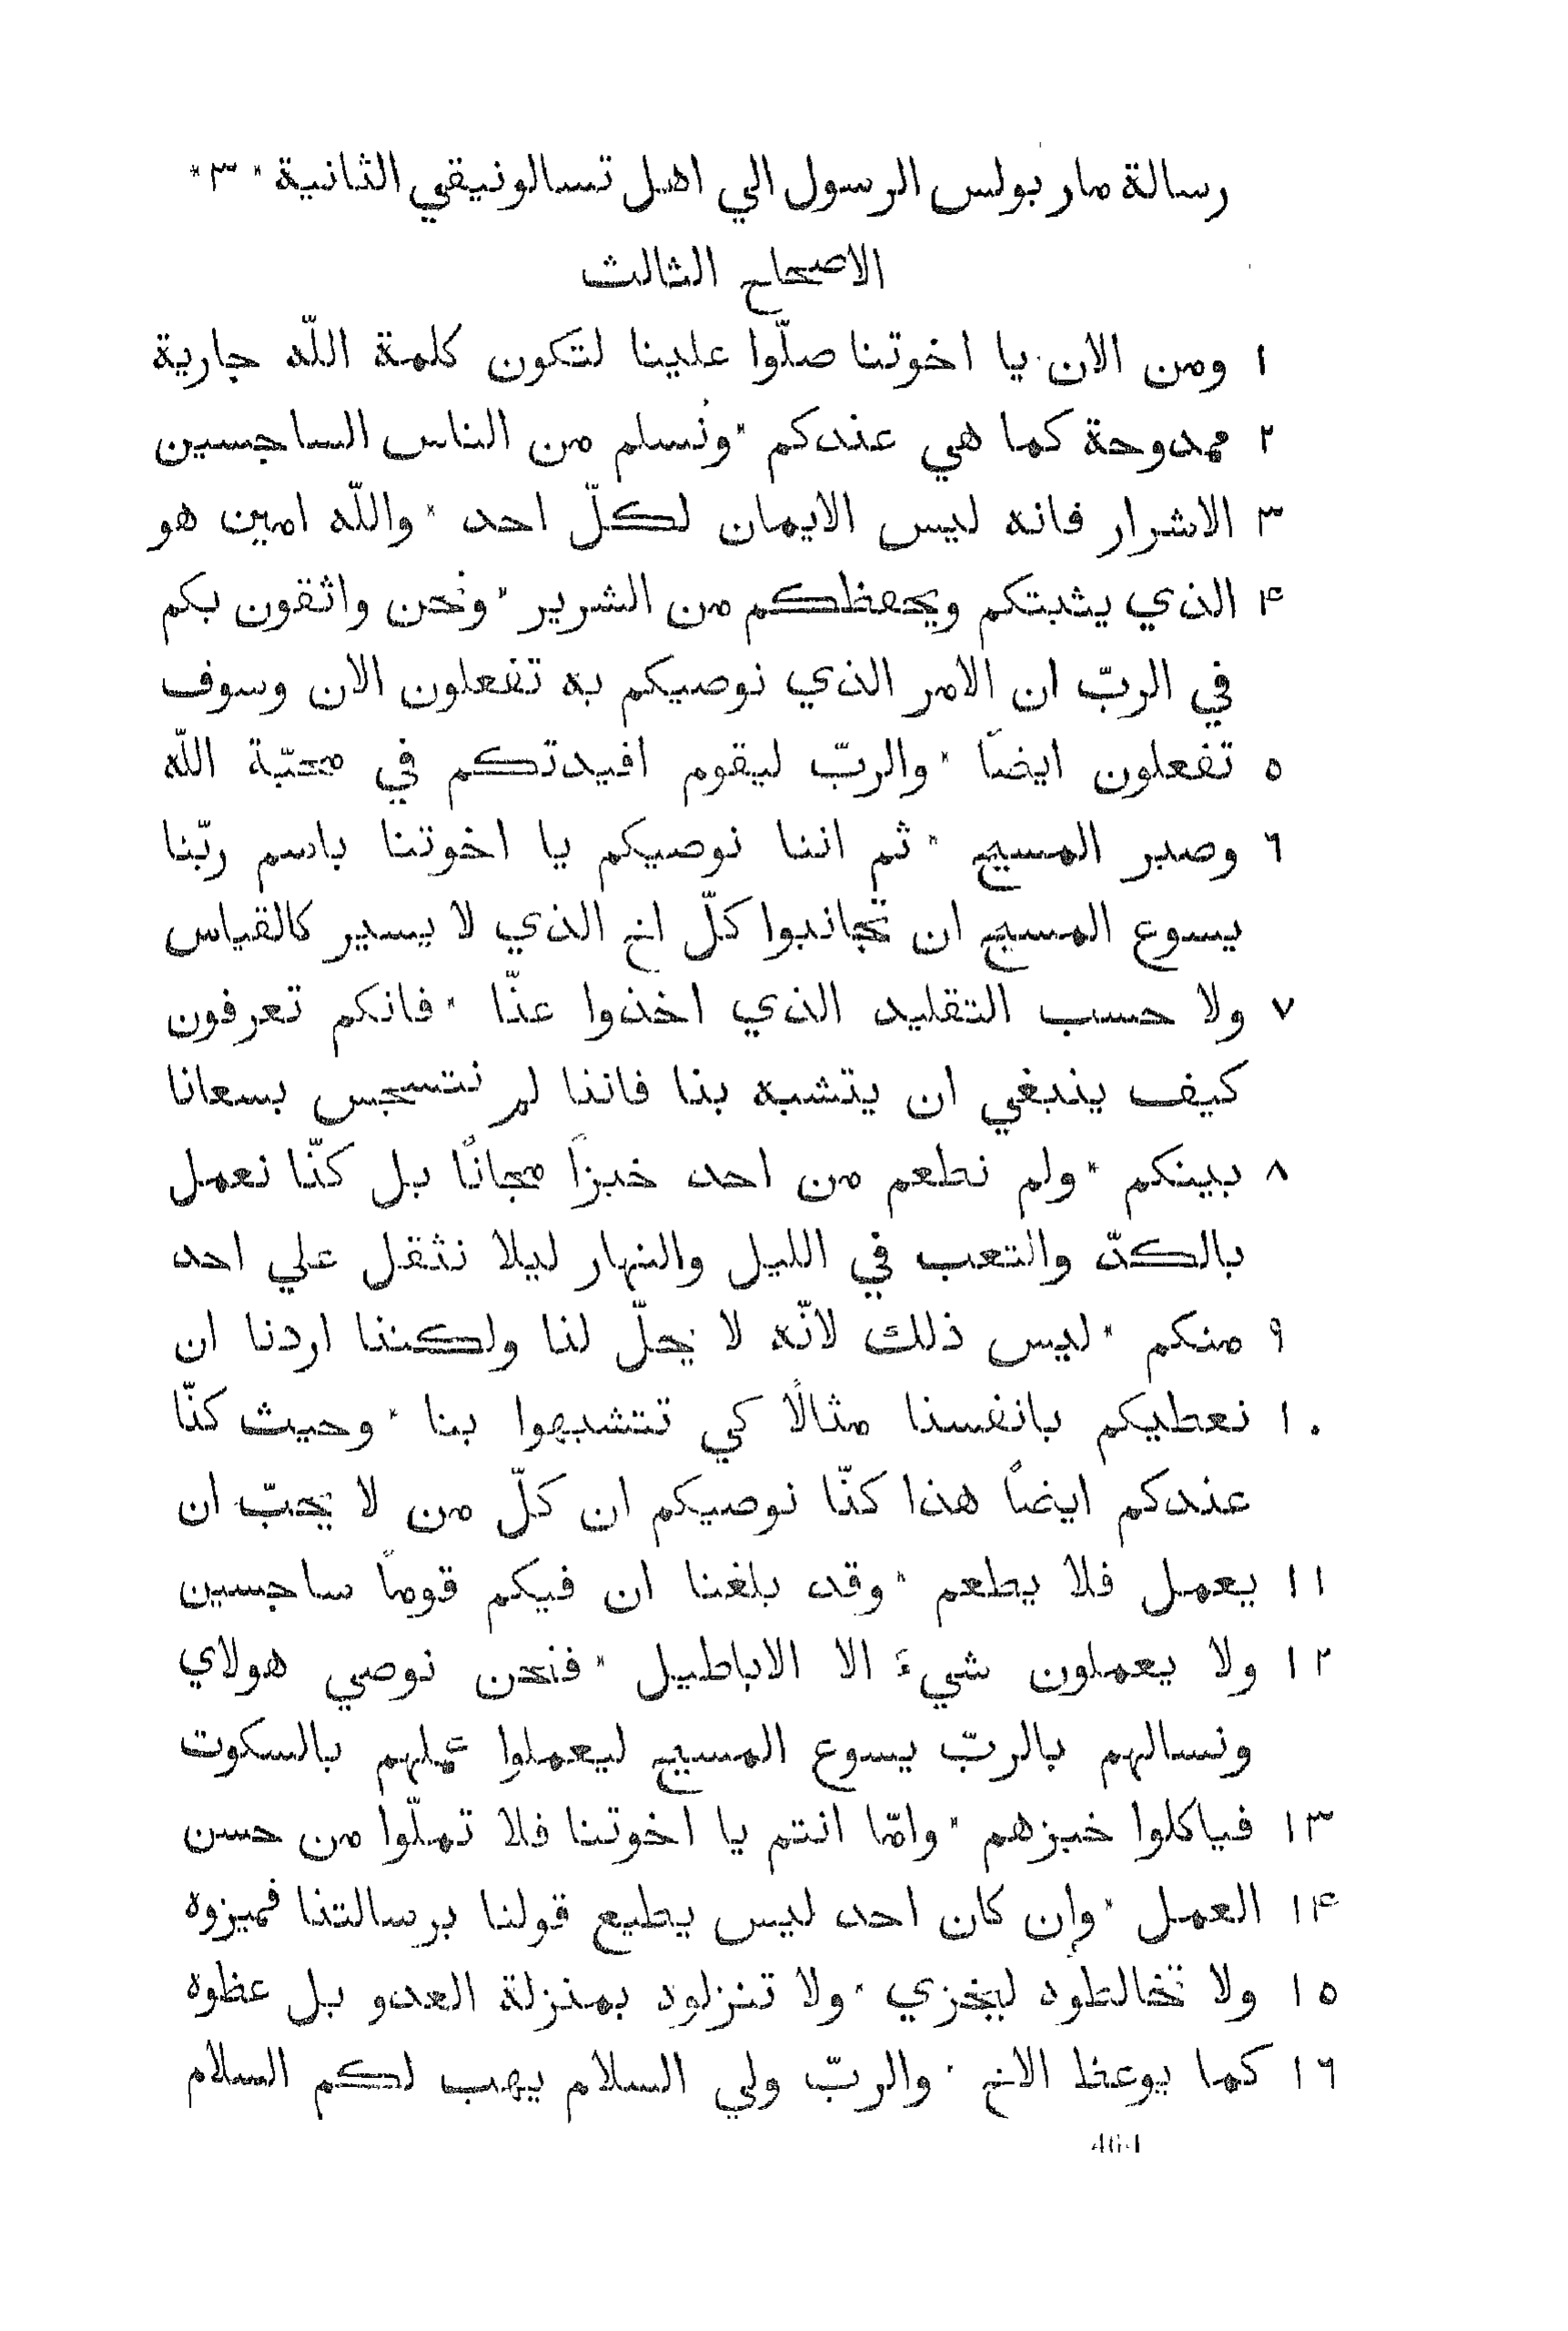 رسالة مار بولس الرسول الي اهل تسالونيقي الثانية * ٣ *
الاصحاح الثالث
١ ومن الان يا اخوتنا صلّوا علينا لتكون كلمة اللّه جارية
٢ ممدوحة كما هي عندكم * ونُسلم من الناس الساجسين
٣ الاشرار فانه ليس الايمان لكلّ احد * واللّه امين هو
۴ الذي يثبتكم ويحفظكم من الشرير * ونحن واثقون بكم
في الربّ ان الامر الذي نوصيكم به تفعلون الان وسوف
٥ تفعلون ايضاً * والربّ ليقوم افيدتكم في محبّة اللّه
٦ وصبر المسيح * ثم اننا نوصيكم يا اخوتنا باسم ربّنا
يسوع المسيح ان تجانبوا كلّ اخ الذي لا يسير كالقياس
٧ ولا حسب التقليد الذي اخذوا عنّا * فانكم تعرفون
كيف ينبغي ان يتشبه بنا فاننا لم نتسجس بسعانا
٨ بينكم * ولم نطعم من احد خبزاً مجاناً بل كنّا نعمل
بالكدّ والتعب في الليل والنهار ليلا نثقل علي احد
٩ منكم * ليس ذلك لانّه لا يحلّ لنا ولكننا اردنا ان
١٠ نعطيكم بانفسنا مثالاً كي تتشبهوا بنا * وحيث كنّا
عندكم ايضاً هذا كنّا نوصيكم ان كلّ من لا يحبّ ان
١١ يعمل فلا يطعم * وقد بلغنا ان فيكم قوماً ساجسين
١٢ ولا يعملون شيءً الا الاباطيل * فنحن نوصي هولاي
ونسالهم بالربّ يسوع المسيح ليعملوا عملهم بالسكوت
١٣ فياكلوا خبزهم * وامّا انتم يا اخوتنا فلا تملّوا من حسن
١۴ العمل * وإن كان احد ليس يطيع قولنا برسالتنا فميزوه
١٥ ولا تخالطوه ليخزي * ولا تنزلوه بمنزلة العدو بل عظوه
١٦ كما يوعظ الاخ * والربّ ولي السلام يهب لكم السلام
464